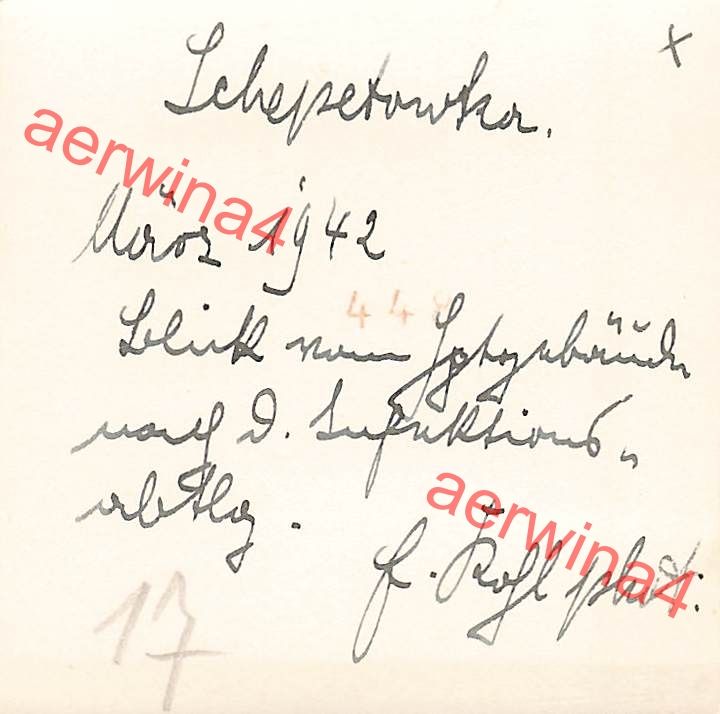 x
Schepetowka.
März 1942
448
Blick vom Hptgebäude
nach d. Infektions-
abtlg.
f. Kohl phot.
17
aerwina4
aerwina4